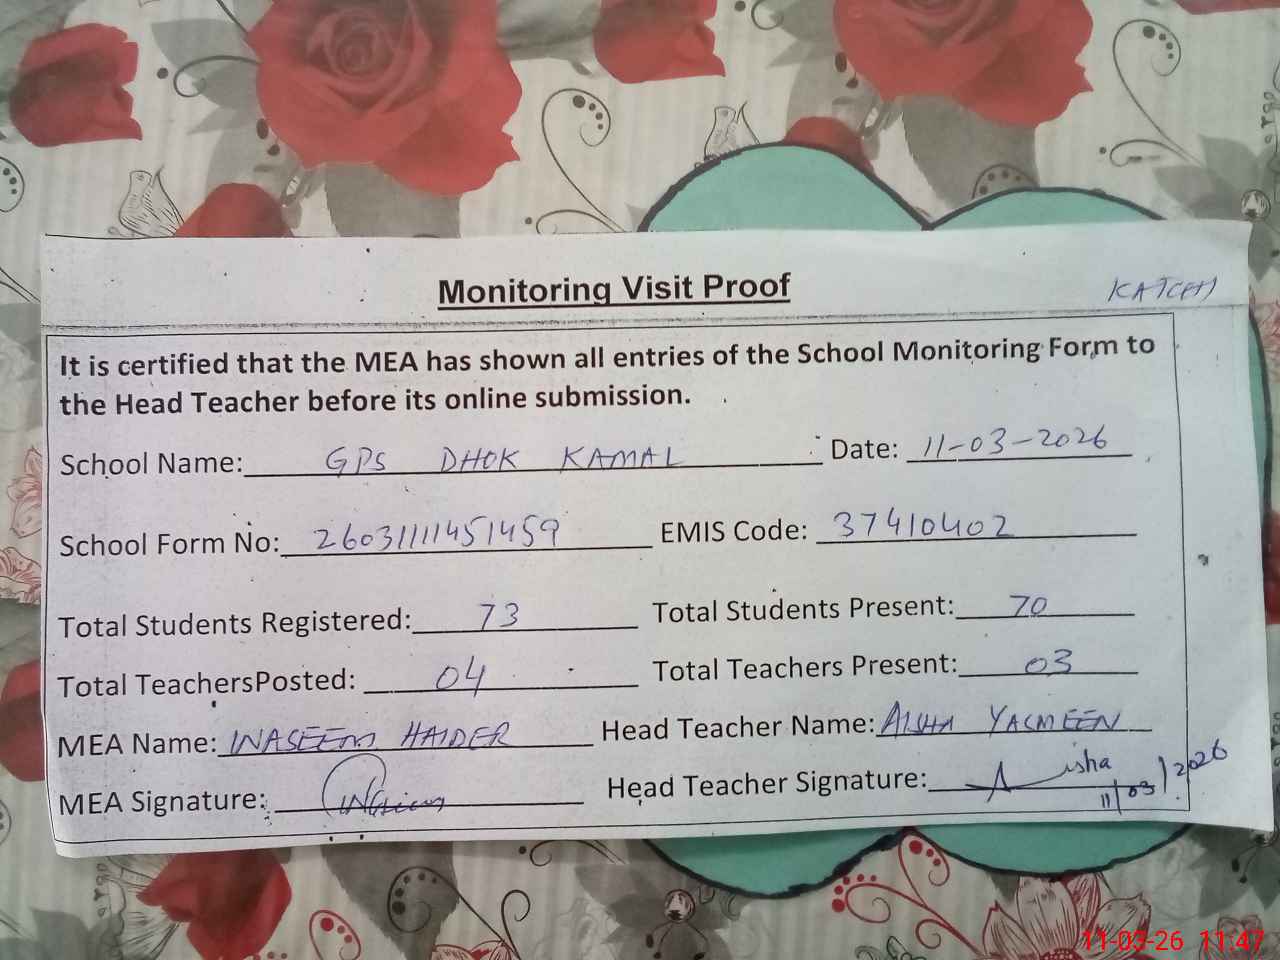 Monitoring Visit Proof
It is certified that the MEA has shown all entries of the School Monitoring Form to
the Head Teacher before its online submission.
School Name: GPS DHOK KAMAL Date: 11-03-2026
School Form No: 26031111451459 EMIS Code: 37410402
Total Students Registered: 73 Total Students Present: 70
Total TeachersPosted: 04 Total Teachers Present: 03
MEA Name: WASEEM HAIDER Head Teacher Name: AISHA YASMEEN
MEA Signature: Head Teacher Signature: Aisha
11/03/2026
11-03-26 11:47